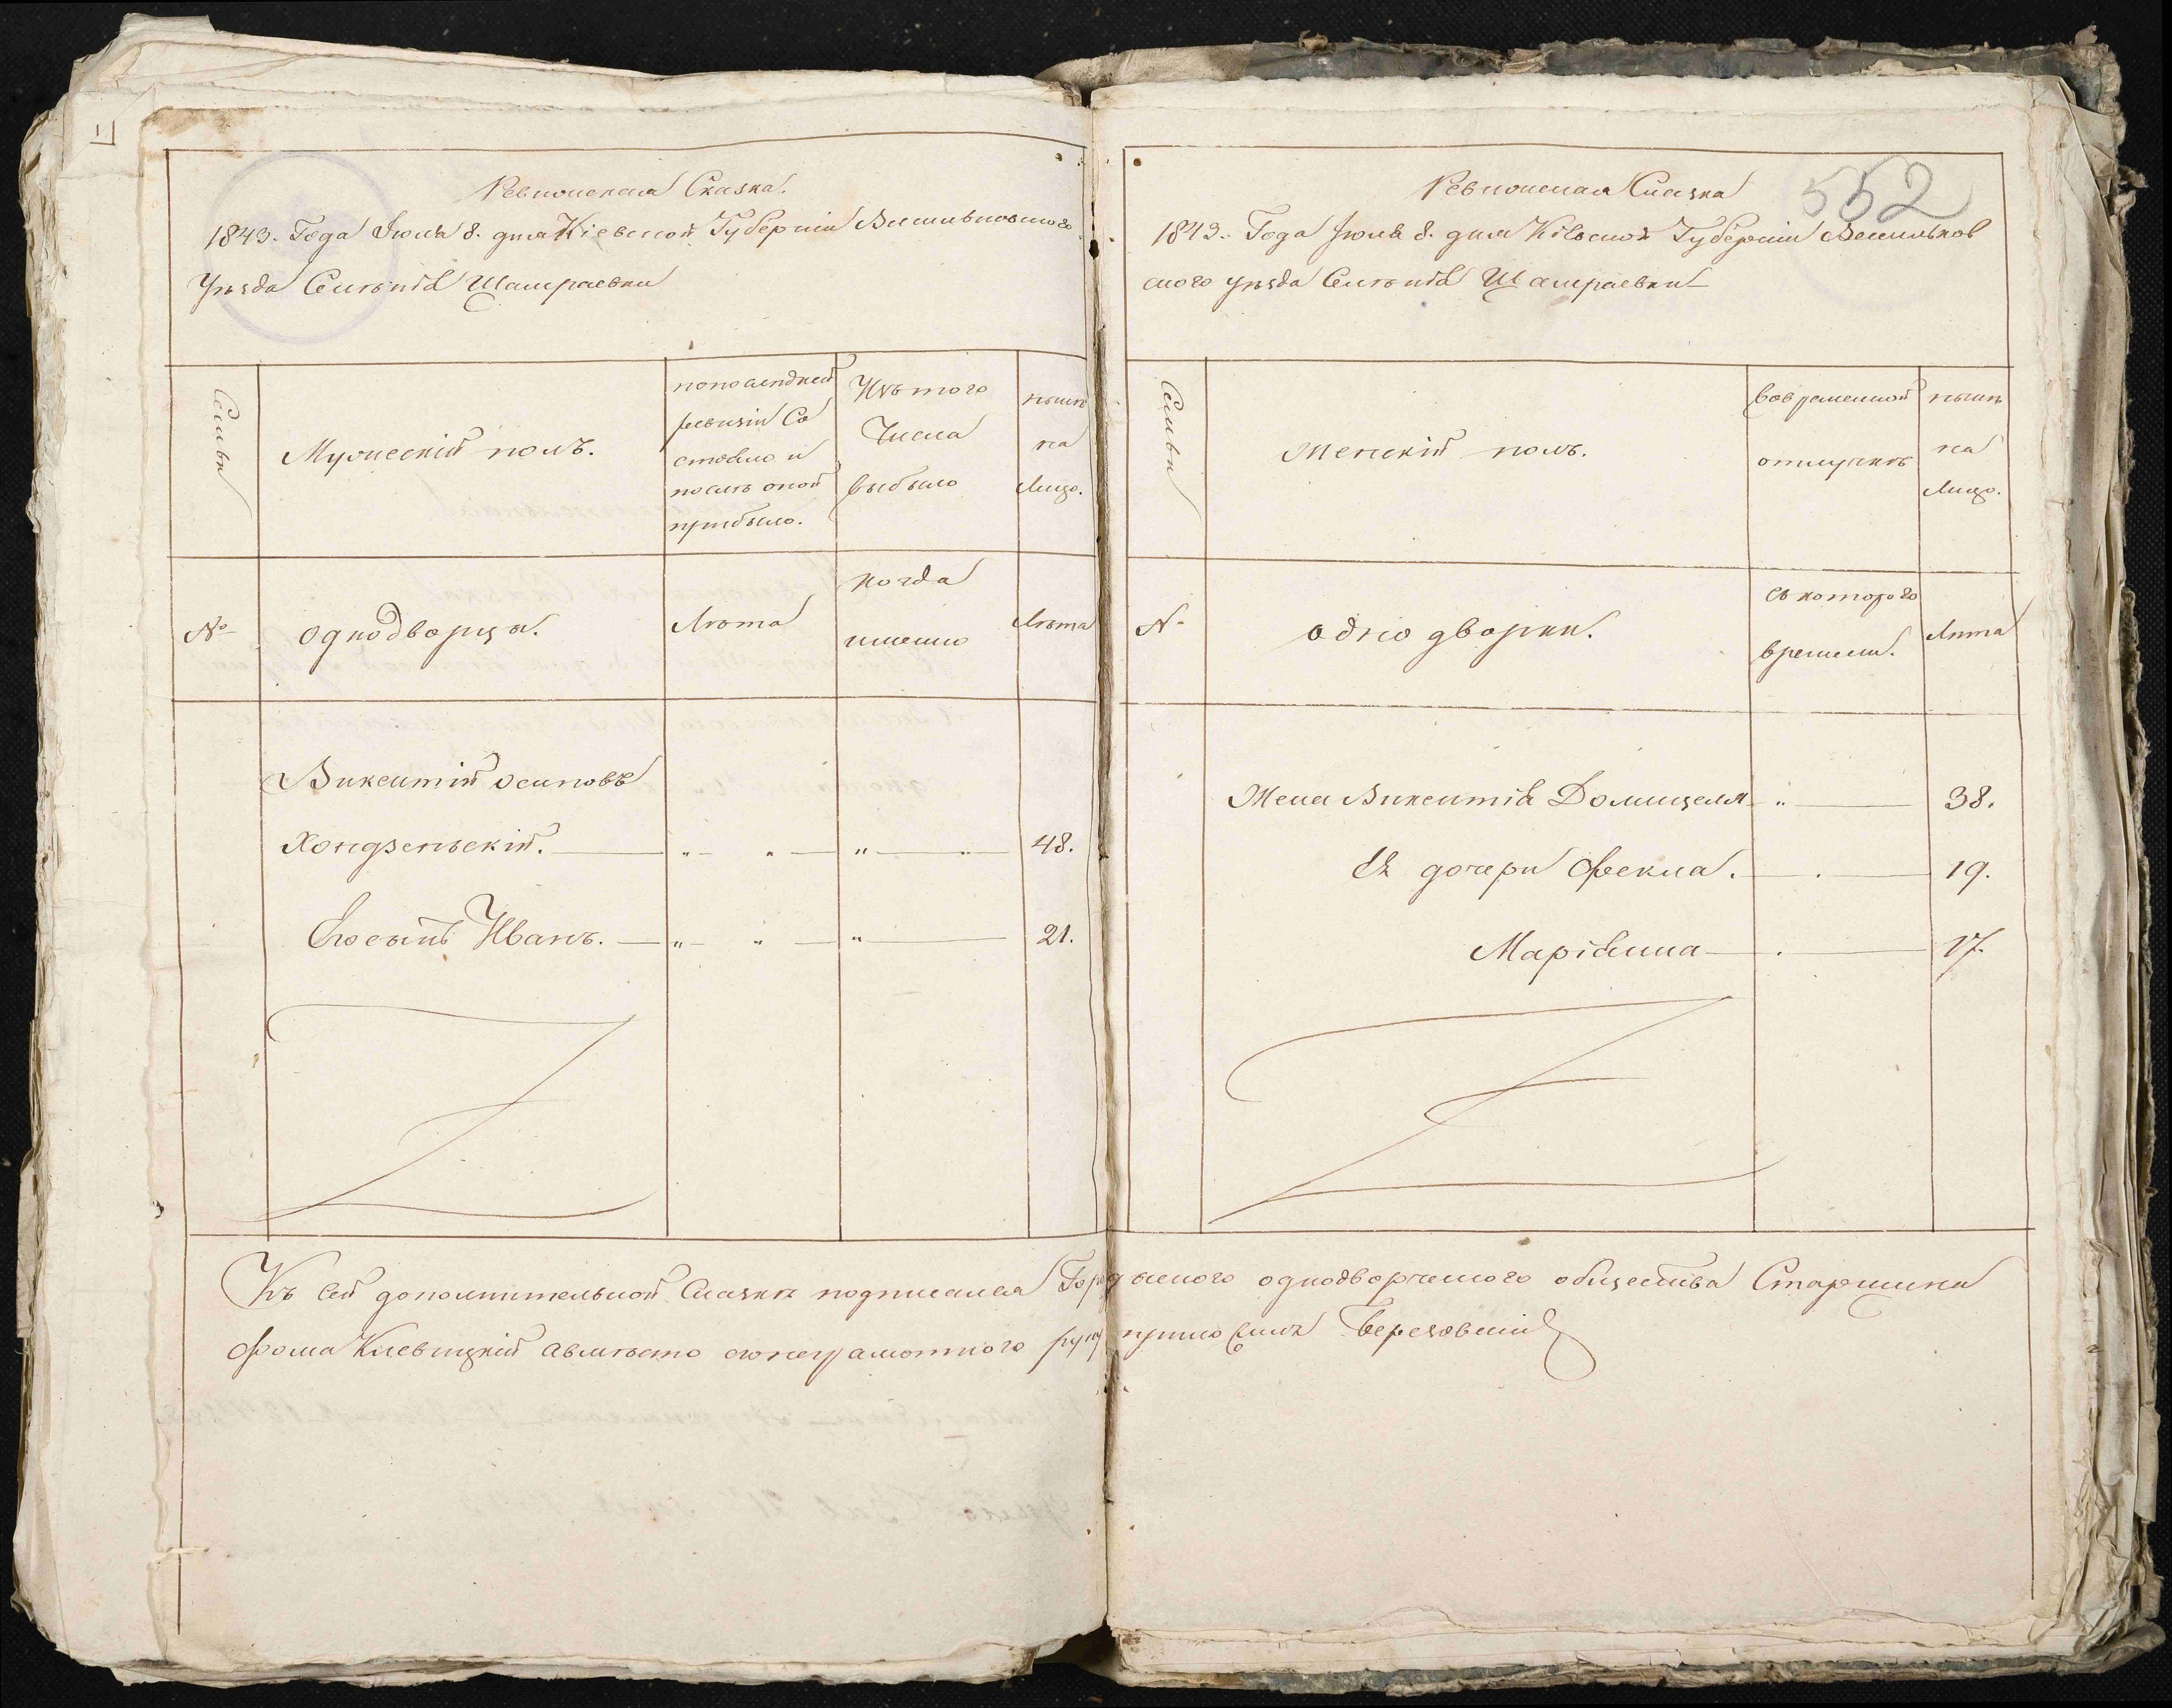 Ревизская Сказка.
1843. Года Июля 8. дня Кіевской Губерніи Васильковского
Уѣзда Селенія Шамраевки
Семьи
Мужескій полъ.
по последней
ревизіи Со
стояло и
послѣ оной
прибыло.
Изъ того
Числа
выбыло
нынѣ
на
Лицо.
№
однодворцы.
Лѣта
когда
именно
Лѣта
Викентій Осиповъ
Хондзеньскій. 48.
Его сынъ Иванъ. 21.
552
Ревизская Сказка
1843. Года Июля 8. дня Кіевской Губерніи Васильков
ского уѣзда Селенія Шамраевки
Семьи
Женскій полъ.
Вовременной
отлучкѣ
нынѣ
на
Лицо.
№
однодворки.
съ которого
времени.
Лѣта
Жена Викентія Домицеля 38.
Ея дочери Фекла. 19.
Маріанна 17.
Къ сей дополнительной Сказки подписался однодворческого общества Старшина
Фома Киевицкий авместо его неграмотного руку приложилъ Березовский